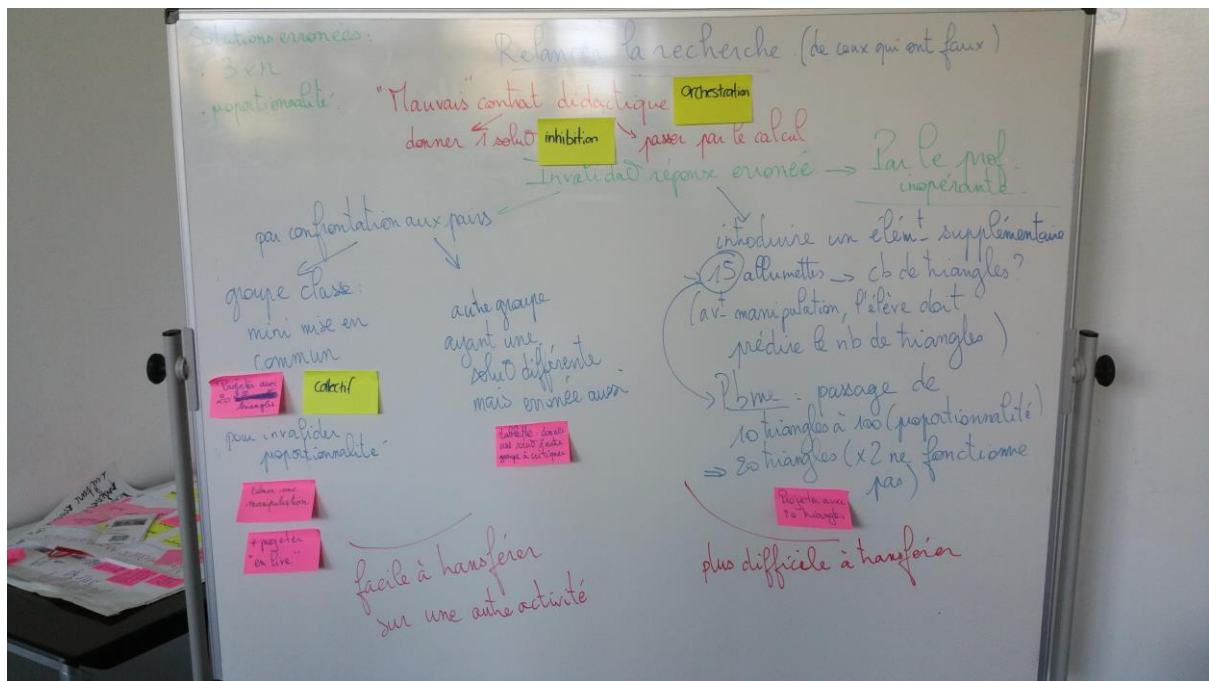 Solutions erronées :
. 3 x n
. proportionnalité.
Relancer la recherche (de ceux qui ont faux)
"Mauvais" contrat didactique
Orchestration
donner 1 soluO
inhibition
passer par le calcul
InvalidaO réponse erronée → Par le prof.
inopérante.
par confrontation aux pairs
groupe classe :
mini mise en
commun
Projeter avec
20
triangles
Collectif
pour invalider
proportionnalité
manipulation
+ projeter
"en live"
autre groupe
ayant une
soluO différente
mais erronée aussi
tablette : donner
une soluO d'autre
groupe à critiquer
facile à transférer
sur une autre activité
introduire un élémt supplémentaire
15 allumettes → cb de triangles ?
(avt manipulation, l'élève doit
prédire le nb de triangles)
Pbme : passage de
10 triangles à 100 (proportionnalité)
⇒ 20 triangles (x2 ne fonctionne
pas)
Projeter avec
20 triangles
plus difficile à transférer